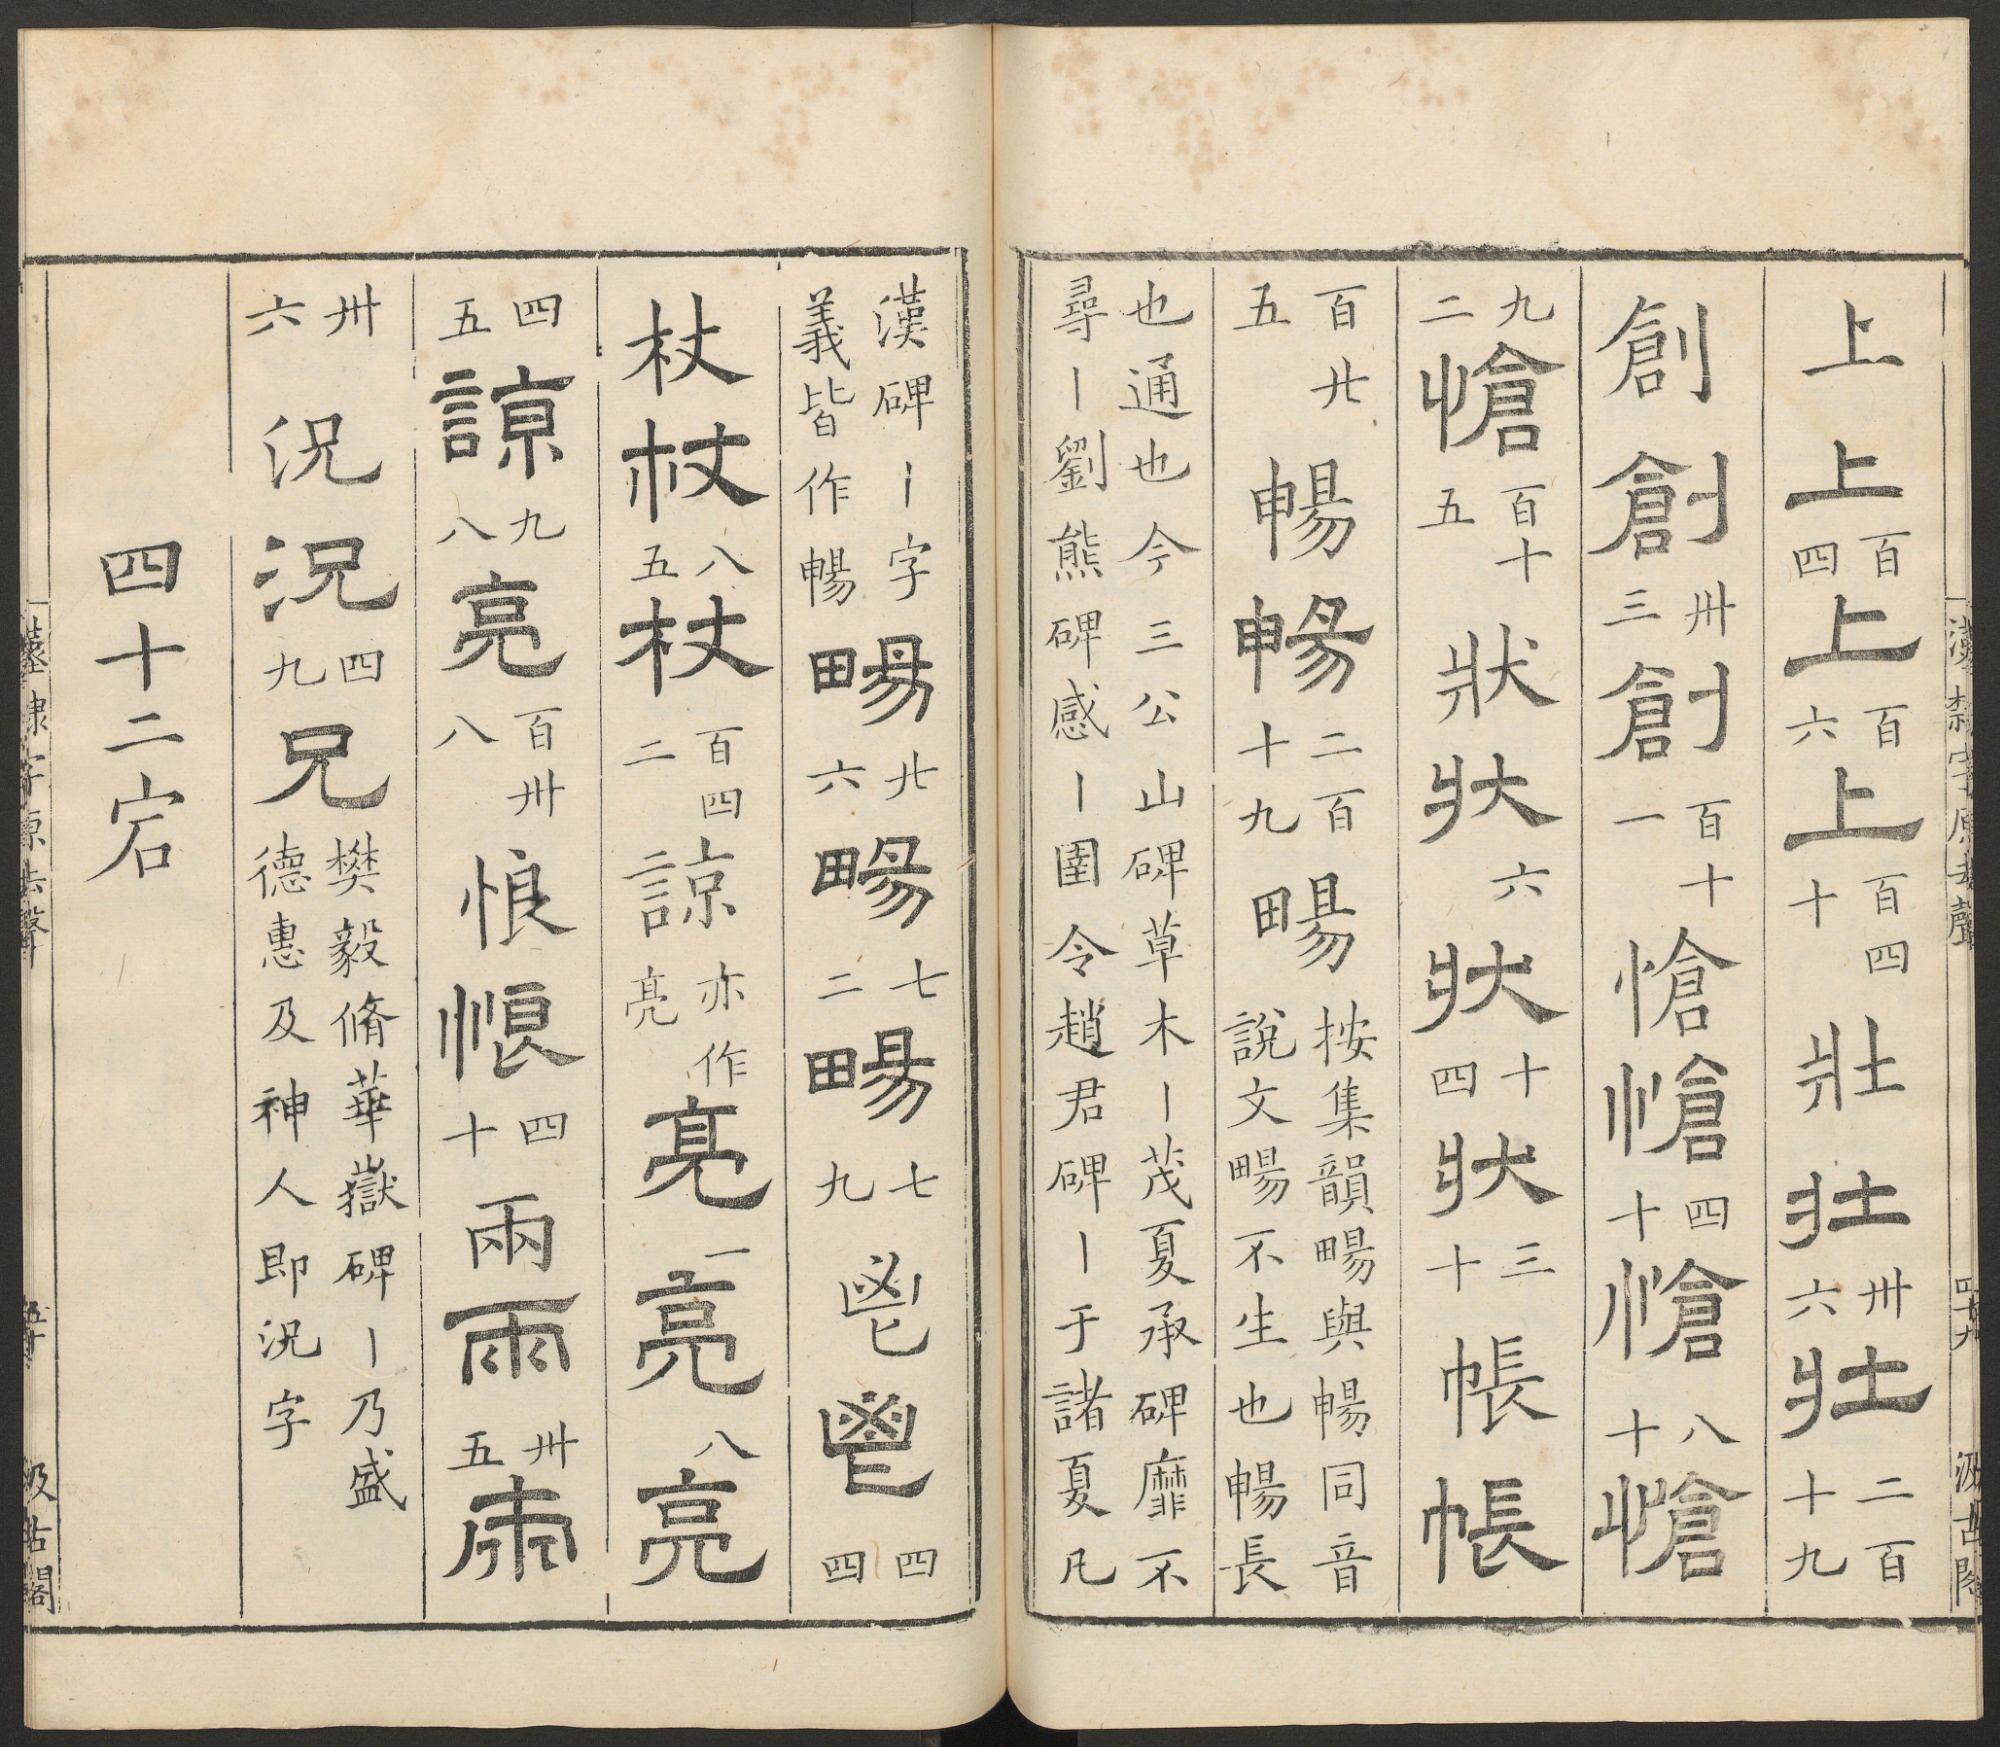 上上百四上百六上百四十壯壯卅六壯二百十九
創創卅三創百十一愴愴四十愴八十愴
九二愴百十五狀狀六狀十四狀三十帳帳
百廿五暢暢二百十九畼按集韻畼與暢同音說文畼不生也暢長
也通也今三公山碑草木丨茂夏承碑靡不
尋丨劉熊碑感丨圉令趙君碑丨于諸夏凡
漢隸字原去聲 四十九 汲古閣
漢碑丨字義皆作暢畼廿六畼七二畼七九鬯鬯四四
杖杖八五杖百四二諒亦作亮亮一亮八亮
四五諒九八亮百卅八悢悢四十兩兩卅五兩
卅六況況四九兄樊毅脩華嶽碑丨乃盛德惠及神人即況字
四十二宕
漢隸字原去聲 五十 汲古閣